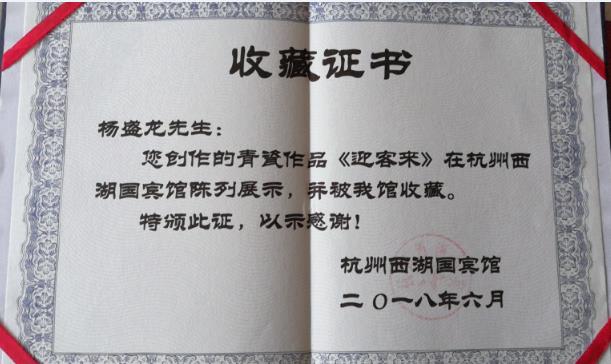 收藏证书
杨盛龙先生：
您创作的青瓷作品《迎客来》在杭州西
湖国宾馆陈列展示，并被我馆收藏。
特颁此证，以示感谢！
杭州西湖国宾馆
二〇一八年六月